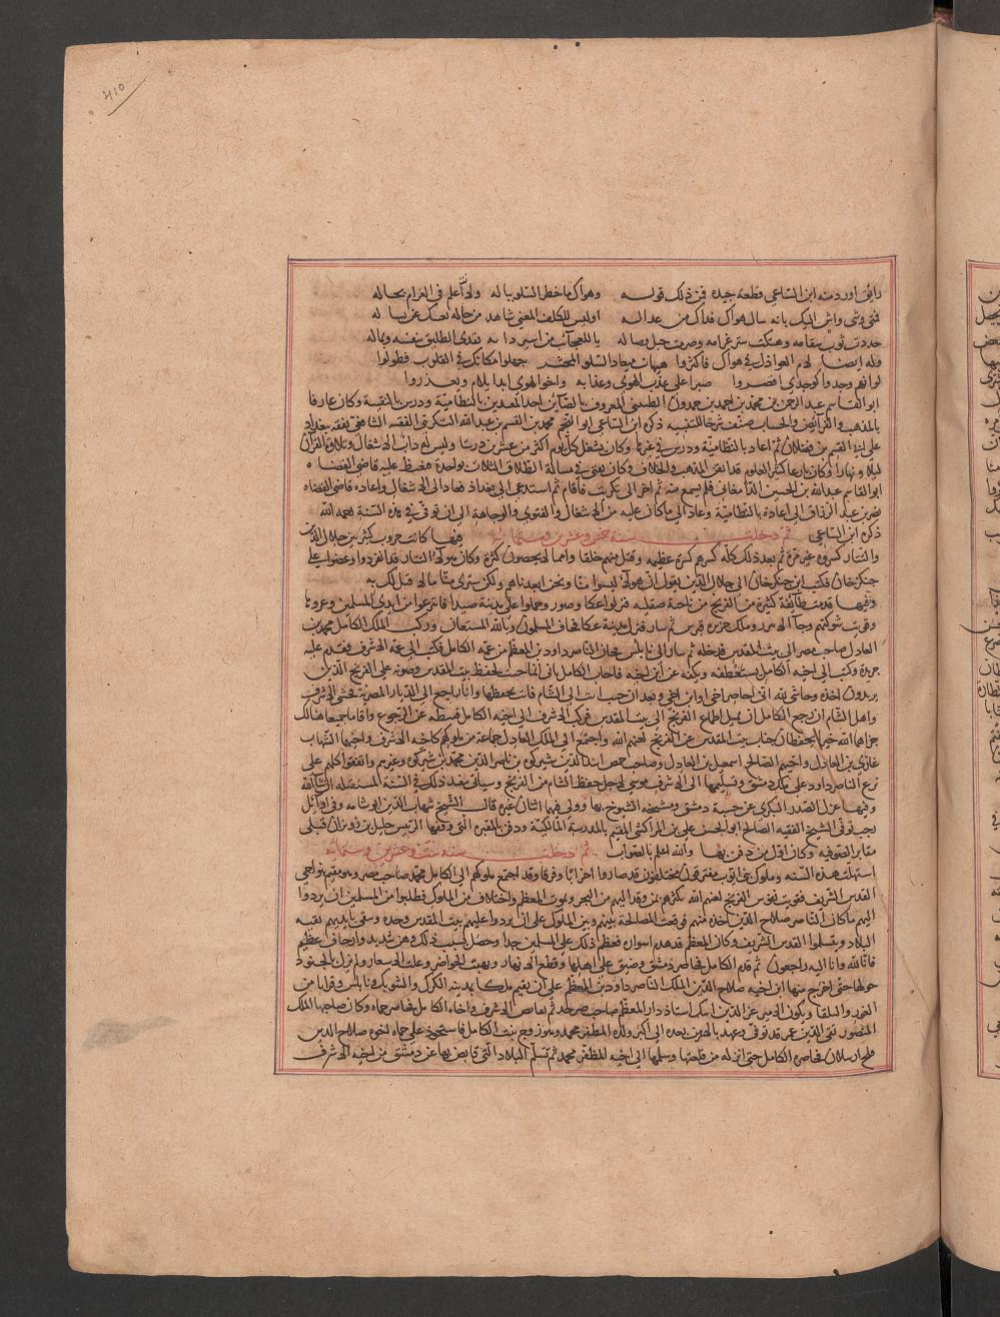 ٢١٥
رائق اورد منه ابن الساعي قطعة جيدة فمن ذلك قوله وهواك ما خطر السلو بباله ولانت اعلم في الغرام بحاله
فمتى وشى واش اليك بانه سال هواك فذاك من عداله اوليس للكلف المعنى شاهد من حاله يغنيك عن تساله
جددت ثوب سقامه وهتكت ستر غرامه وصرمت حبل وصاله ياللعجائب من اسير دابه يفدى الطليق بنفسه وبماله
وله ايضا لام العواذل في هواك فاكثروا هيهات ميعاد السلو المحشر جهلوا مكانك في القلوب فطولوا
لو انهم وجدوا كوجدي اقصروا صبرا على عذب الهوى وعذابه واخو الهوى ابدا يلام ويعذر
ابو القاسم عبد الرحمن بن محمد بن احمد بن حمدون الطيبي المعروف بالصائن احد المعيدين بالنظامية ودرس بالثقتية وكان عارفا
بالمذهب والفرائض والحساب صنف شرحا للتنبيه ذكره ابن الساعي ابو النجم محمد بن القسم بن عبد الله التكريتي الفقيه الشافعي تفقه ببغداد
على ابي القسم بن فضلان ثم اعاد بالنظامية ودرس في غيرها وكان يشتغل كل يوم اكثر من عشرين درسا وليس له داب الا الاشغال وتلاوة القران
ليلا ونهارا وكان بارعا كثير العلوم قد اتقن المذهب والخلاف وكان يفتي في مسالة الطلاق الثلاث بواحدة فتغيظ عليه قاضي القضاة
ابو القاسم عبد الله بن الحسين الدامغاني فلم يسمع منه ثم اخرج الى تكريت فاقام ثم استدعي الى بغداد فعاد الى الاشغال واعاده قاضي القضاة
نصر بن عبد الرزاق الى اعادة بالنظامية وعاد الى ما كان عليه من الاشغال والفتوى والوجاهة الى ان توفي في هذه السنة رحمه الله
ذكره ابن الساعي ثم دخلت سنة خمس وعشرين وستمائة فيها كانت حروب كثيرة بين جلال الدين
والتتار كسروه غير مرة ثم بعد ذلك كله كسرهم كسرة عظيمة وقتل منهم خلقا وامما لا يحصون كثرة وكان هولاء التتار قد انفردوا وعصوا على
جنكزخان فكتب ابن جنكزخان الى جلال الدين يقول ان هولاء ليسوا منا ونحن ابعدناهم ولكن سترى منا ما لا قبل لك به
وفيها قدمت طائفة كثيرة من الفرنج من ناحية صقلية فنزلوا عكا وصور وحملوا على مدينة صيدا فانتزعوا من ايدي المسلمين وعبروها
وقويت شوكتهم وجاء الانبرور ملك جزيرة قبرس ثم سار فنزل مدينة عكا فخاف المسلمون وبالله المستعان وركب الملك الكامل محمد بن
العادل صاحب مصر الى بيت المقدس فدخله ثم سار الى نابلس فخاف الناصر داود بن المعظم من عمه الكامل فكتب الى عمه الاشرف فقدم عليه
جريدة وكتب الى اخيه الكامل يستعطفه ويكفه عن ابن اخيه فاجاب الكامل باني انما جئت لحفظ بيت المقدس وصونه على الفرنج الذين
يريدون اخذه وحاش لله اني احاصر اخي او ابن اخي وبعد ان جئت انت الى الشام فانت تحفظها وانا راجع الى الديار المصرية فخشي الاشرف
واهل الشام ان رجع الكامل ان تميل اطماع الفرنج الى بيت المقدس فركب الاشرف الى اخيه الكامل فثبطه عن الرجوع واقاما جميعا هنالك
جزاهما الله خيرا يحفظان جناب بيت المقدس عن الفرنج لعنهم الله واجتمع الى الملك العادل جماعة من ملوكهم كاخيه الاشرف واخيهما الشهاب
غازي بن العادل واخيهم الصالح اسمعيل بن العادل وصاحب حمص اسد الدين شيركوه بن ناصر الدين محمد بن شيركوه وغيرهم واتفقوا كلهم على
نزع الناصر داود على ملك دمشق وتسليمها الى الاشرف موسى لاجل حفظ الشام من الفرنج وسياتي بعد ذلك في السنة المستقبلة ان شاء الله
وفيها عزل الصدر البكري عن حسبة دمشق ومشيخة الشيوخ بها وولي فيهما اثنان غيره قال الشيخ شهاب الدين ابو شامة وفي اوائل
رجب توفي الشيخ الفقيه الصالح ابو الحسن علي بن المراكشي المقيم بالمدرسة المالكية ودفن بالمقبرة التي وقفها الرئيس خليل بن زويزان قبلي
مقابر الصوفية وكان اول من دفن بها والله اعلم بالصواب ثم دخلت سنة ست وعشرين وستمائة
استهلت هذه السنة وملوك بني ايوب مفترقون مختلفون قد صاروا احزابا وفرقا وقد اجتمع ملوكهم الى الكامل محمد صاحب مصر وهو مقيم بنواحي
القدس الشريف فقويت نفوس الفرنج لعنهم الله بكثرتهم بمن وفد اليهم من البحر وبموت المعظم واختلاف من الملوك فطلبوا من المسلمين ان يردوا
اليهم ما كان الناصر صلاح الدين اخذه منهم فوقعت المصالحة بينهم وبين الملوك على ان يردوا عليهم بيت المقدس وحده وتبقى بايديهم بقية
البلاد وتسلموا القدس الشريف وكان المعظم قد هدم اسواره فعظم ذلك على المسلمين جدا وحصل بسبب ذلك وهن شديد وارجاف عظيم
فانا لله وانا اليه راجعون ثم قدم الكامل فحاصر دمشق وضيق على اهلها وقطع الانهار ونهبت الحواضر وغلت الاسعار ولم تزل الجنود
حولها حتى اخرج منها ابن اخيه صلاح الدين الملك الناصر داود بن المعظم على ان يقيم ملكا بمدينة الكرك والشوبك ونابلس وقرايا من
الغور والبلقا ويكون الامير عز الدين ايبك استاذ دار المعظم صاحب صرخد ثم تقايض الاشرف واخاه الكامل فحاصر حماه وكان صاحبها الملك
المنصور تقي الدين عمر قد توفي وعهد بالامر من بعده الى اكبر ولده المظفر محمد وهو زوج بنت الكامل فاستحوذ على حماه اخوه صلاح الدين
قلج ارسلان فحاصره الكامل حتى انزله من قلعتها وسلمها الى اخيه المظفر محمد ثم تسلم البلاد التي قايض بها عن دمشق من اخيه الاشرف